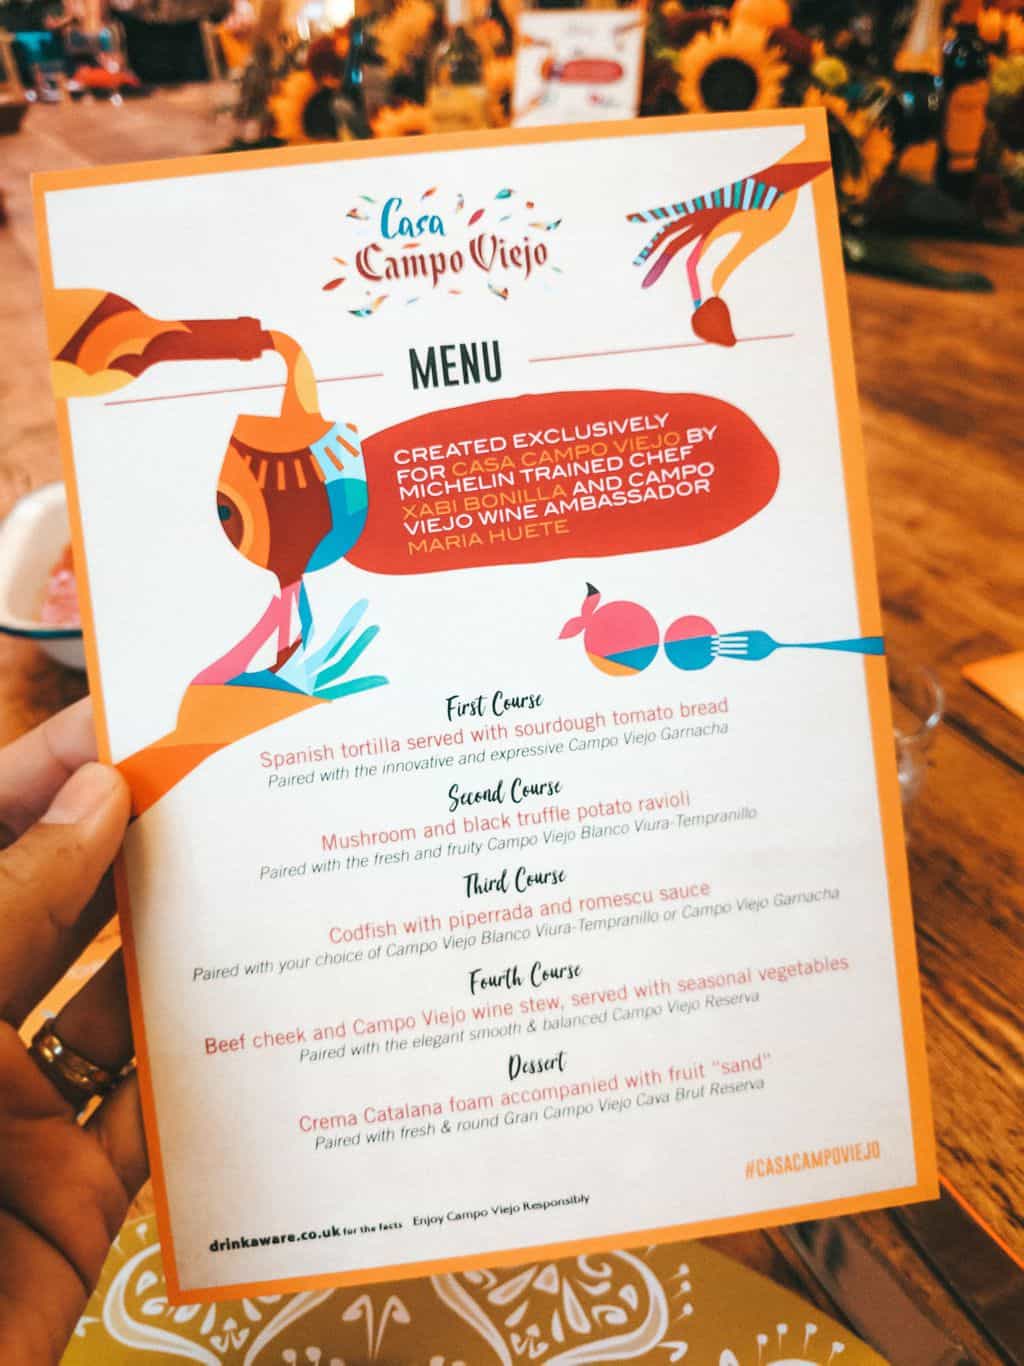 Casa
Campo Viejo
MENU
CREATED EXCLUSIVELY
FOR CASA CAMPO VIEJO BY
MICHELIN TRAINED CHEF
XABI BONILLA AND CAMPO
VIEJO WINE AMBASSADOR
MARIA HUETE
First Course
Spanish tortilla served with sourdough tomato bread
Paired with the innovative and expressive Campo Viejo Garnacha
Second Course
Mushroom and black truffle potato ravioli
Paired with the fresh and fruity Campo Viejo Blanco Viura-Tempranillo
Third Course
Codfish with piperrada and romescu sauce
Paired with your choice of Campo Viejo Blanco Viura-Tempranillo or Campo Viejo Garnacha
Fourth Course
Beef cheek and Campo Viejo wine stew, served with seasonal vegetables
Paired with the elegant smooth & balanced Campo Viejo Reserva
Dessert
Crema Catalana foam accompanied with fruit "sand"
Paired with fresh & round Gran Campo Viejo Cava Brut Reserva
#CASACAMPOVIEJO
drinkaware.co.uk for the facts Enjoy Campo Viejo Responsibly